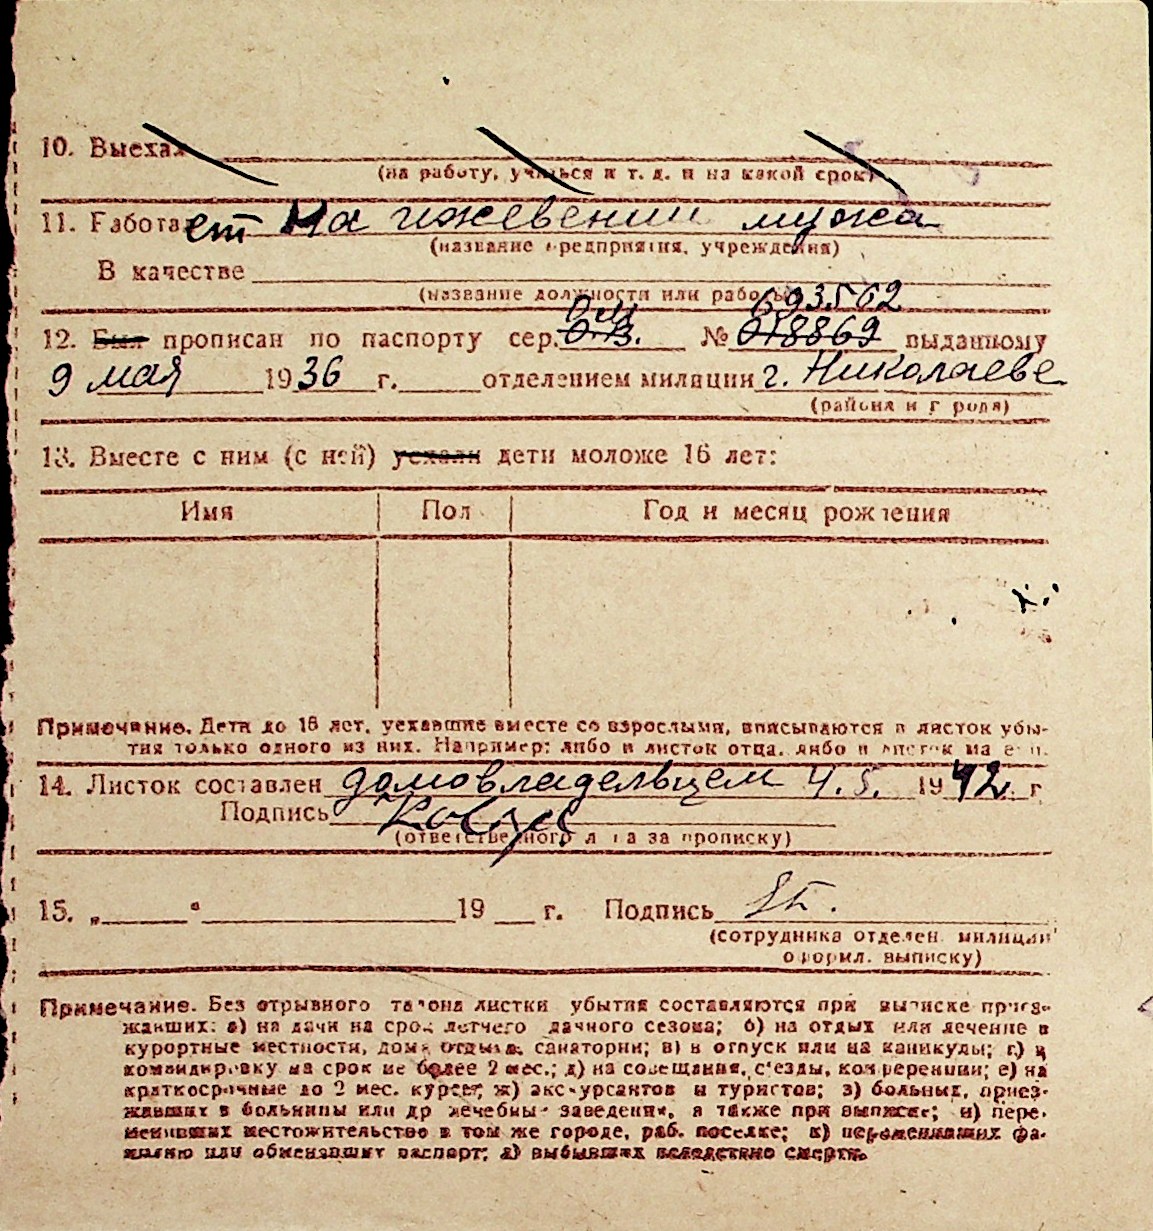 10. Выехал
(на работу, учиться и т. д. и на какой срок)
11. Работает на ижевении мужа
(название предприятия, учреждения)
В качестве
(название должности или работы)
693562
12. Был прописан по паспорту сер. О.В. № 018869 выданному
9 мая 1936 г. отделением милиции г. Николаеве
(района и города)
13. Вместе с ним (с ней) уехали дети моложе 16 лет:
Имя Пол Год и месяц рождения
Примечание. Дети до 16 лет, уехавшие вместе со взрослыми, вписываются в листок убы-
тия только одного из них. Например: либо в листок отца, либо в листок матери.
14. Листок составлен домовладельцем 4.5. 1942 г
Подпись
(ответственного лица за прописку)
15. „ “ 19 г. Подпись
(сотрудника отделен. милиции
оформл. выписку)
Примечание. Без отрывного талона листки убытия составляются при выписке приез-
жавших: а) на дачи на срок летнего дачного сезона; б) на отдых или лечение в
курортные местности, дома отдыха, санатории; в) в отпуск или на каникулы; г) в
командировку на срок не более 2 мес.; д) на совещания, с'езды, конференции; е) на
краткосрочные до 2 мес. курсы; ж) экскурсантов и туристов; з) больных, приез-
жавших в больницы или др лечебные заведения, а также при выписке; и) пере-
менивших местожительство в том же городе, раб. поселке; к) переменивших фа-
милию или обменявших паспорт; л) выбывших вследствие смерти.